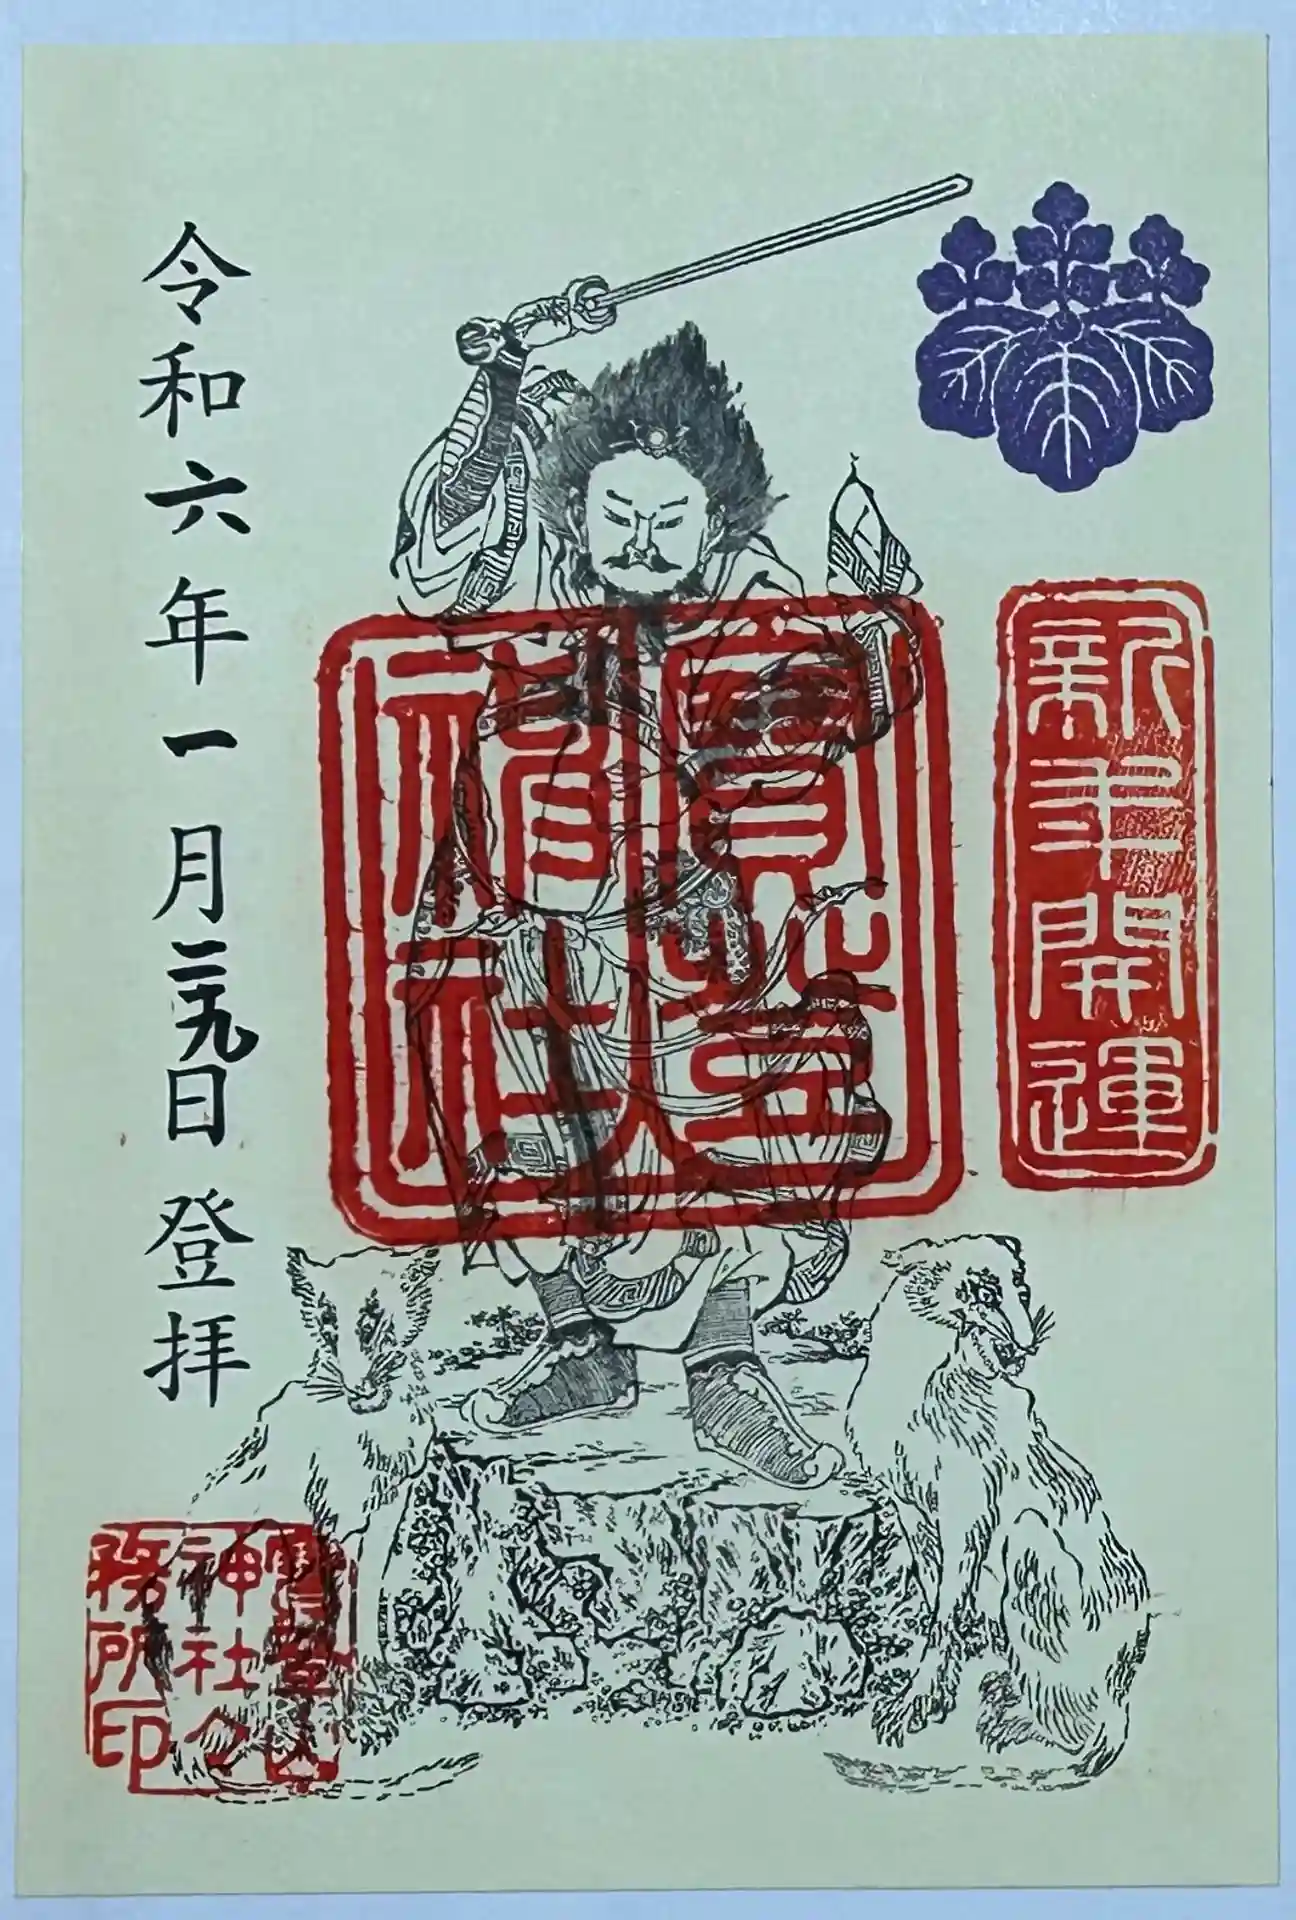 新年開運
寶登
社
令和六年一月二十九日 登拝
寶登山
神社々
務所印